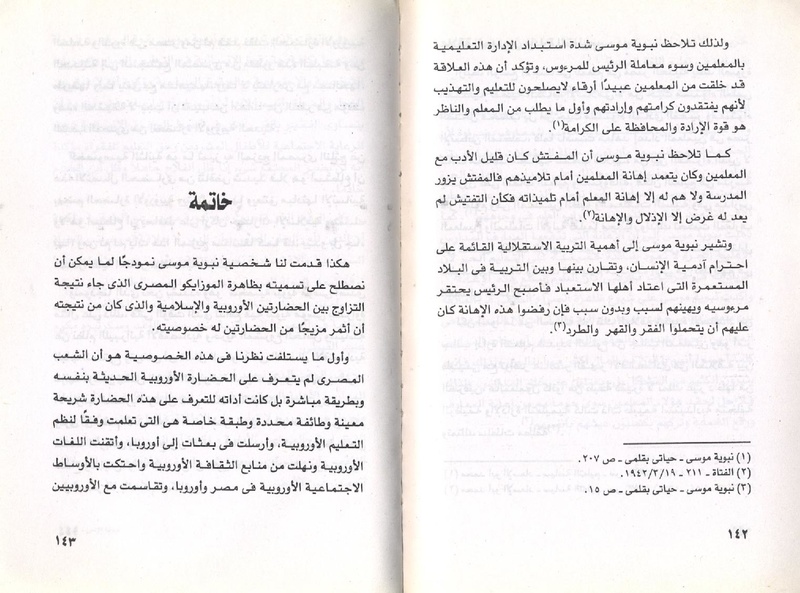 ولذلك تلاحظ نبوية موسى شدة استبداد الإدارة التعليمية
بالمعلمين وسوء معاملة الرئيس للمرءوس، وتؤكد أن هذه العلاقة
قد خلقت من المعلمين عبيدًا أرقاء لايصلحون للتعليم والتهذيب
لأنهم يفتقدون كرامتهم وإرادتهم وأول ما يطلب من المعلم والناظر
هو قوة الإرادة والمحافظة على الكرامة(١).
كما تلاحظ نبوية موسى أن المفتش كان قليل الأدب مع
المعلمين وكان يتعمد إهانة المعلمين أمام تلاميذهم فالمفتش يزور
المدرسة ولا هم له إلا إهانة المعلم أمام تلميذاته فكأن التفتيش لم
يعد له غرض إلا الإذلال والإهانة(٢).
وتشير نبوية موسى إلى أهمية التربية الاستقلالية القائمة على
احترام آدمية الإنسان، وتقارن بينها وبين التربية فى البلاد
المستعمرة التى اعتاد أهلها الاستعباد فأصبح الرئيس يحتقر
مرءوسيه ويهينهم لسبب وبدون سبب فإن رفضوا هذه الإهانة كان
عليهم أن يتحملوا الفقر والقهر والطرد(٣).
(١) نبوية موسى ـ حياتى بقلمى ـ ص ٢٠٧.
(٢) الفتاة ـ ٢١١ ـ ١٩٤٢/٣/١٩.
(٣) نبوية موسى ـ حياتى بقلمى ـ ص ١٥.
١٤٢
خاتمة
هكذا قدمت لنا شخصية نبوية موسى نموذجًا لما يمكن أن
نصطلح على تسميته بظاهرة الموزايكو المصرى الذى جاء نتيجة
التزاوج بين الحضارتين الأوروبية والإسلامية والذى كان من نتيجته
أن أثمر مزيجًا من الحضارتين له خصوصيته.
وأول ما يستلفت نظرنا فى هذه الخصوصية هو أن الشعب
المصرى لم يتعرف على الحضارة الأوروبية الحديثة بنفسه
وبطريقة مباشرة بل كانت أداته للتعرف على هذه الحضارة شريحة
معينة وطائفة محددة وطبقة خاصة هى التى تعلمت وفقًا لنظم
التعليم الأوروبية، وأرسلت فى بعثات إلى أوروبا، وأتقنت اللغات
الأوروبية ونهلت من منابع الثقافة الأوروبية واحتكت بالأوساط
الاجتماعية الأوروبية فى مصر وأوروبا، وتقاسمت مع الأوروبيين
١٤٣